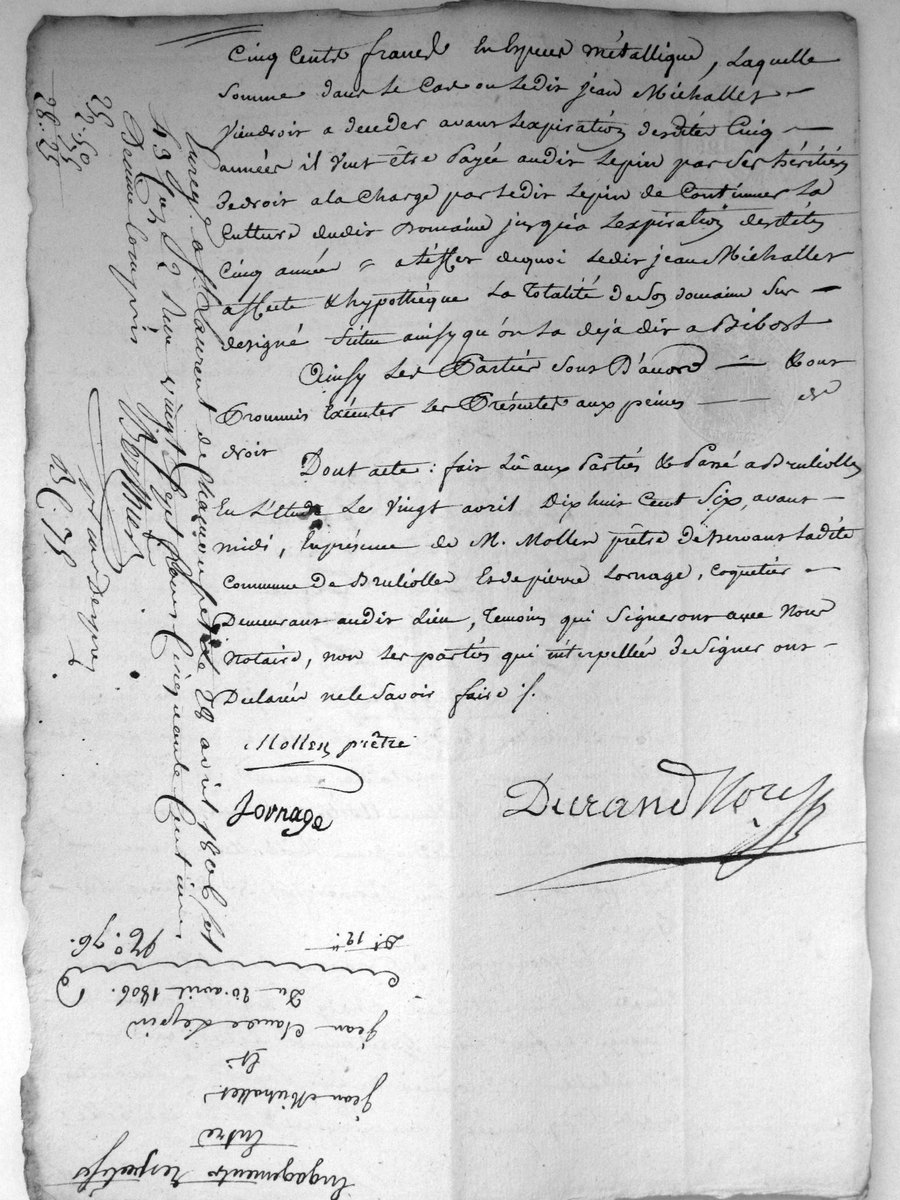 Cinq Cents francs En Espèces métallique, Laquelle
Somme dans Le Cas ou Ledit jean Michallet
Viendroit a deceder avant L'expiration desdites Cinq
années il veut être payée audit Lepin par ses héritiers
de droit a la Charge par Ledit Lepin de Continuer La
Culture dudit Domaine jusqu'a L'expiration desdites
Cinq année = a l'effet de quoi Ledit jean Michallet
affecte & hypothéque La Totalité de Son domaine Sus
designé Situé ainsy qu'on L'a deja dit a Bibost
Ainsy Les Parties Sont D'accord & ont
Prommis Exécuter Les Présentes aux peines de
droit
Dont acte : fait Lû aux Parties & Passé a Brulliolles
En L'Etude Le Vingt avril Dix huit Cent Six, avant
midi, En présence de M. Mollen prêtre deservant Ladite
Commune De Brulliolles Et de pierre Lornage, Coquetier
Demeurant audit Lieu, Temoins qui Signeront avec Nous
Notaire, non Les parties qui intérpellées de Signer ont
Declarées ne le Savoir faire /.
Mollen prêtre
Lornage
Durand Nore
Enreg. a St Laurent de Chamousset le 28 avril 1806 fol
43 Reçu vingt Sept francs Cinquante Centimes
Decime Compris
Durand Nore
25
2.50
.75
28.25
Engagements respectifs
Entre
jean Michallet
Et
jean Claude Lepin
Du 20. avril 1806.
No. 76.